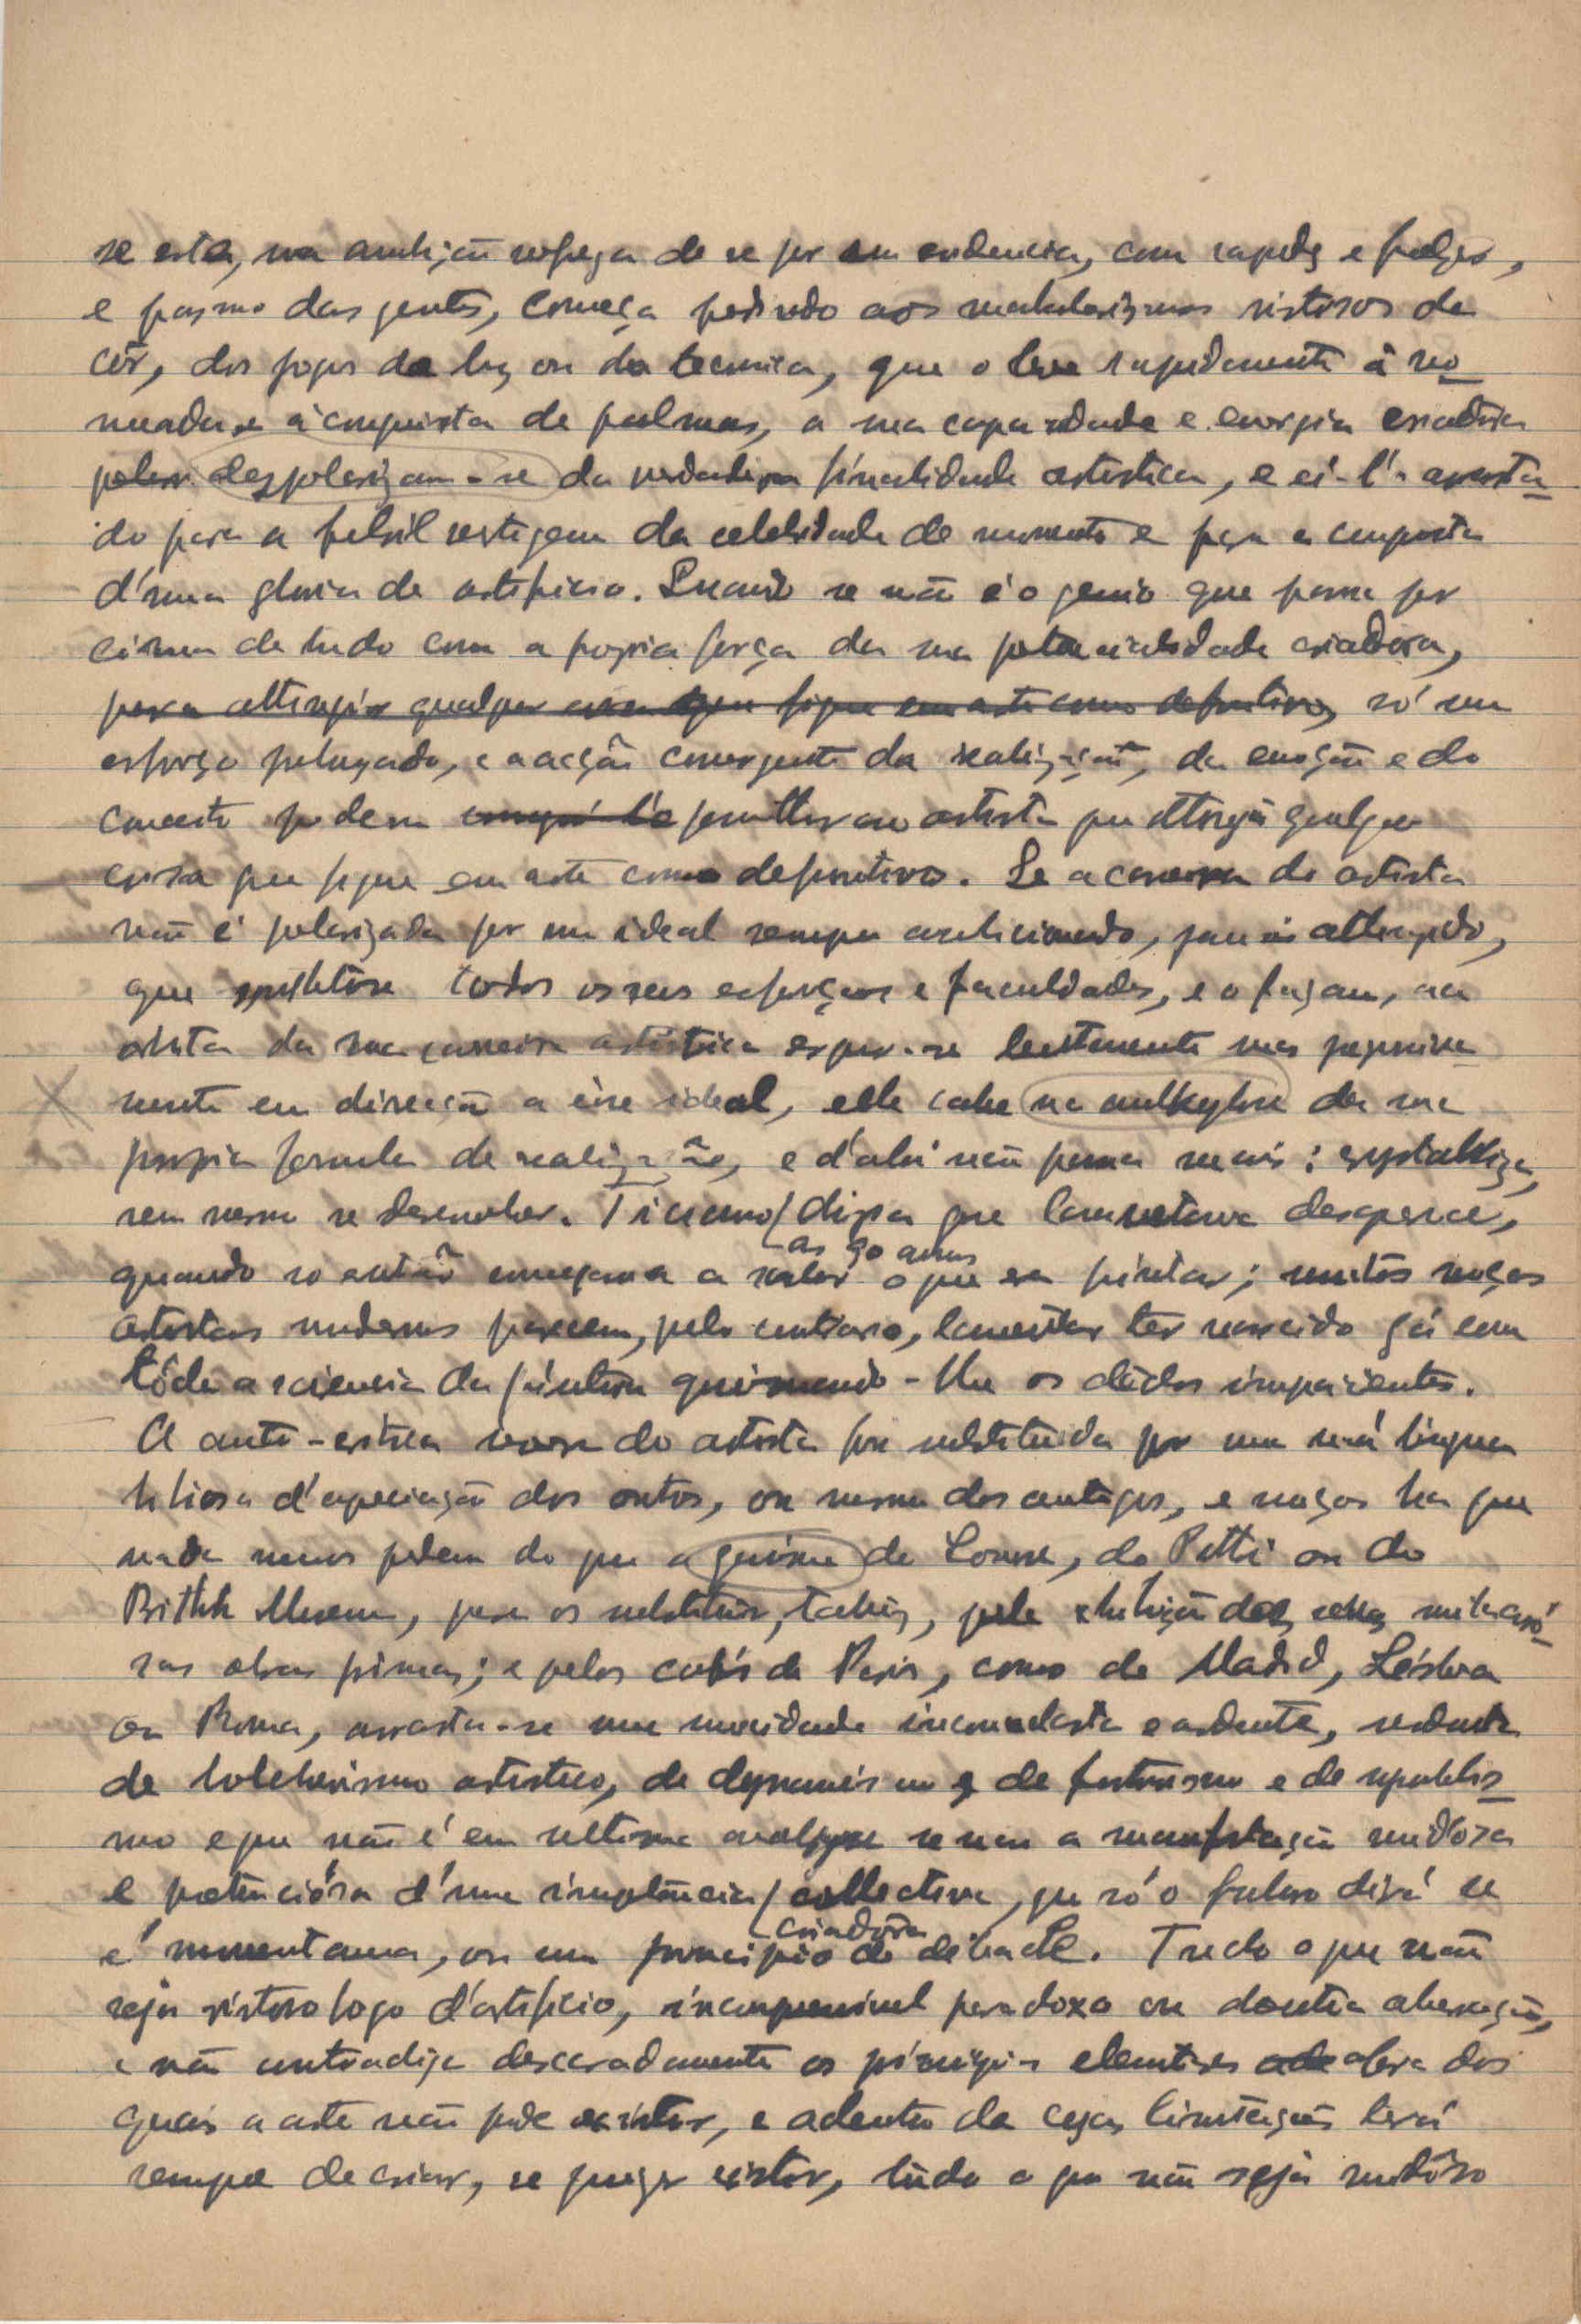 se esta, na ambição sofrega de se pôr em evidencia, com rapidez e fulgor,
e pasmo das gentes, começa pedindo aos malabarismos vistosos da
côr, dos jogos da luz ou da tecnica, que o leve rapidamente á no-
meada e á conquista de palmas, a sua capacidade e energia creadora
despolarizam-se da verdadeira finalidade artistica, e ei-l'o arrasta-
do para a febril vertigem da celebridade de momento e para a conquista
d'uma gloria de artificio. Quando se não é o genio que passa por
cima de tudo com a propria força da sua potencialidade criadora,
para attingir qualquer que fique em arte como definitivo, só um
esforço prolongado, e a acção convergente da realização, da emoção e do
conceito podem permittir ao artista que attinja qualquer
coisa que fique em arte como definitivo. Se a carreira do artista
não é polarizada por um ideal sempre ambicionado, jamais attingido,
que todos os seus esforços e faculdades, e o façam, na
orbita da sua carreira artistica erguer-se lentamente mas progressiva-
mente em direcção a esse ideal, elle cahe na da sua
propria formula de realização, e d'ahi não passa mais: crystalliza,
sem mesmo se desenvolver. Ticiano dizia que lamentava desaparecer,
as 90 annos
quando só então começava a saber o que era pintar; muitos moços
artistas modernos parecem, pelo contrario, lamentar ter nascido já com
tôda a sciencia da pintura queimando-lhe os dedos impacientes.
A auto-critica do artista foi substituida por uma má lingua
biliosa d'apreciação dos outros, ou mesmo dos antigos, e moços ha que
nada menos pedem do que a queima do Louvre, do Pitti ou do
British Museum, para os substituir, talvez, pela exhibição das suas milagro-
sas obras primas; e pelos cafés de Paris, como de Madrid, Lisboa
ou Roma, arrasta-se uma mocidade iconoclasta e ardente,
de bolchevismo artistico, de dynamismo e de futurismo e de
mo e que não é em ultima analyse senão a manifestação ruidosa
e d'uma impotencia collectiva, que só o futuro dirá se
criadora
é momentanea, ou um principio de débacle. Tudo o que não
seja vistoso fogo d'artificio, incompreensivel paradoxo ou doentia aberração,
e não contradiga descaradamente os principios elementares fóra dos
quais a arte não pode existir, e adentro de cujas limitações terá
sempre de criar, se quizer existir, tudo o que não seja ruidôso